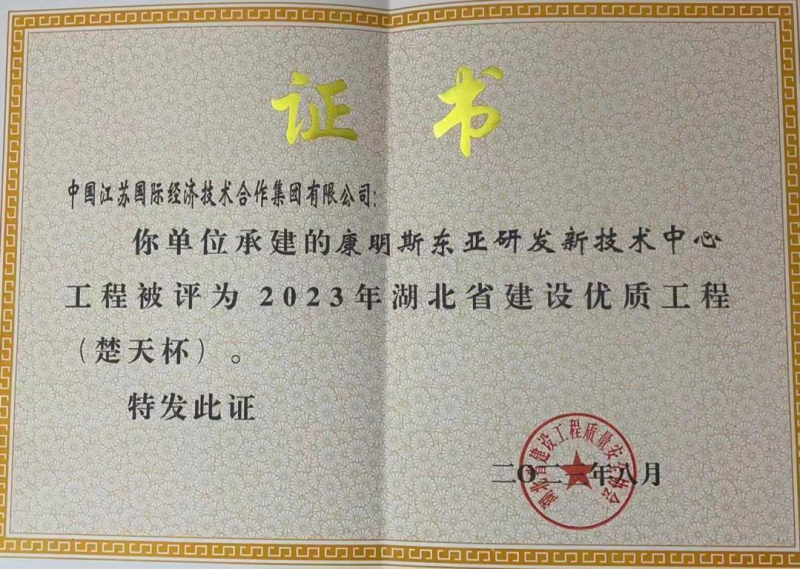 证书
中国江苏国际经济技术合作集团有限公司：
你单位承建的康明斯东亚研发新技术中心
工程被评为2023年湖北省建设优质工程
（楚天杯）。
特发此证
湖北省建设工程质量安全协会
二〇二三年八月